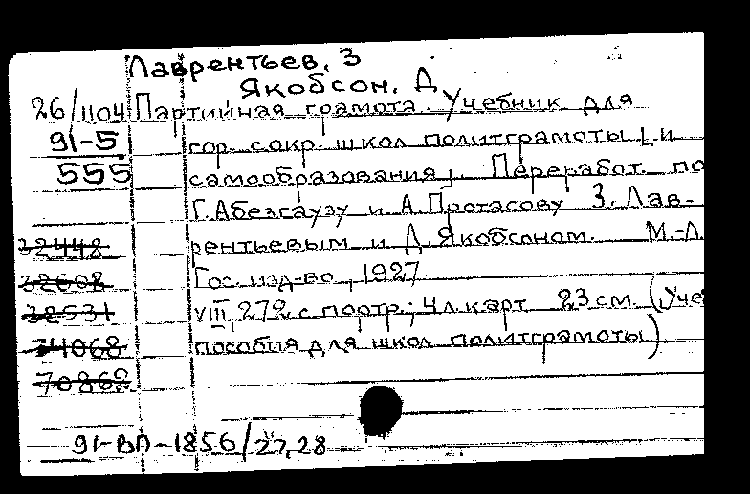 Лаврентьев, З
Якобсон, Д
26/1104 Партийная грамота. Учебник для
91-5 гор. сокр. школ политграмоты и
555 самообразования. Переработ. по
Г. Абезгаузу и А. Протасову З. Лав-
32448 рентьевым и Д. Якобсоном. М.-Л.
Гос. изд-во, 1927
38531 VIII, 272 с. портр.; 4 л. карт 23 см. (Уче
34068 пособия для школ политграмоты)
70862
91-ВП-1856/27,28